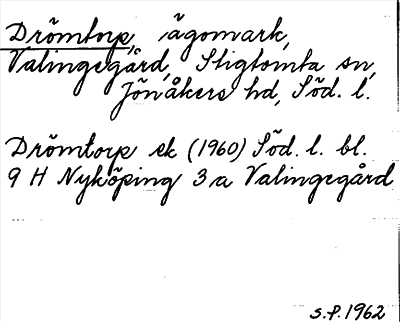 Drömtorp, ägomark,
Valingegård, Stigtomta sn,
Jönåkers hd, Söd. l.
Drömtorp ek (1960) Söd. l. bl.
9 H Nyköping 3 a Valingegård
s.f. 1962